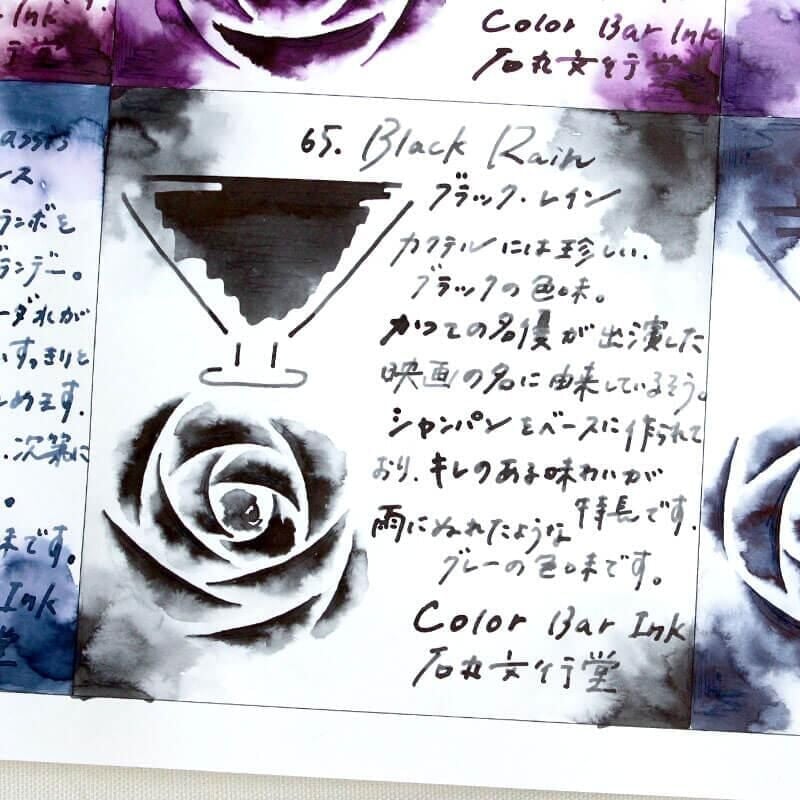 Ink
Color Bar Ink
石丸文行堂
assis
ンス、
ランボを
ランデー。
ーダ水が
いすっきりと
しめます。
、次第に
。
味です。
Ink
堂
65. Black Rain
ブラック・レイン
カクテルには珍しい、
ブラックの色味。
かつての名優が出演した
映画の名に由来しているそう。
シャンパンをベースに作られて
おり、キレのある味わいが
特長です。
雨にぬれたような
グレーの色味です。
Color Bar Ink
石丸文行堂